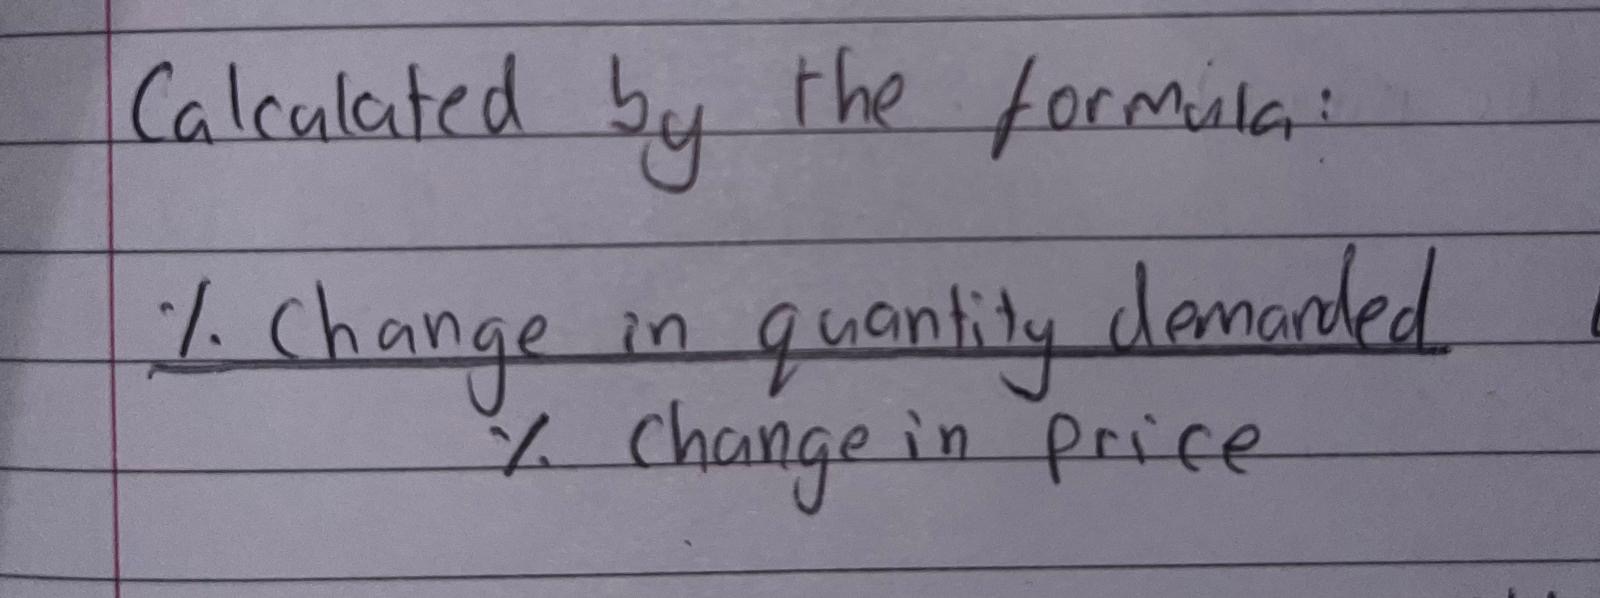 Calculated by the formula:
% Change in quantity demanded
% Change in price